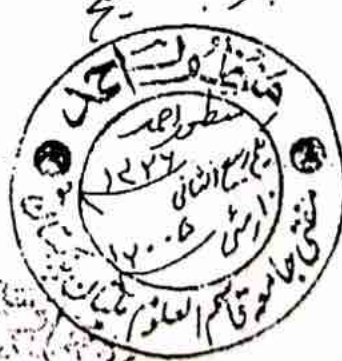 منظور احمد
منظور احمد
یکم ربیع الثانی
۱۴۲۶
۱۰ مئی ۲۰۰۵
مفتی جامعہ قاسم العلوم ملتان پاکستان